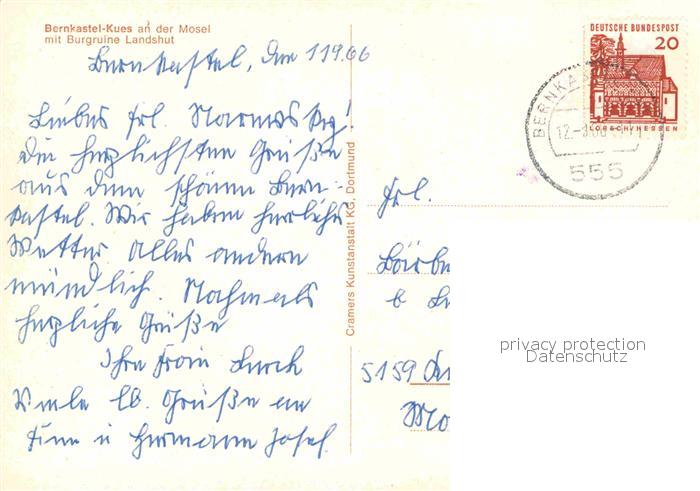 Bernkastel-Kues an der Mosel
mit Burgruine Landshut
Bernkastel, den 11.9.66
Liebes Frl.
Die herzlichsten Grüße
aus dem schönen Bern-
kastel. Wir haben herrliches
Wetter. Alles andere
mündlich. Nochmals
herzliche Grüße
Ihre Frau
Viele lb. Grüße an
u Hermann Josef.
Cramers Kunstanstalt KG, Dortmund
DEUTSCHE BUNDESPOST
20
LORSCH/HESSEN
BERNKASTEL
12.
555
Frl.
5159
privacy protection
Datenschutz